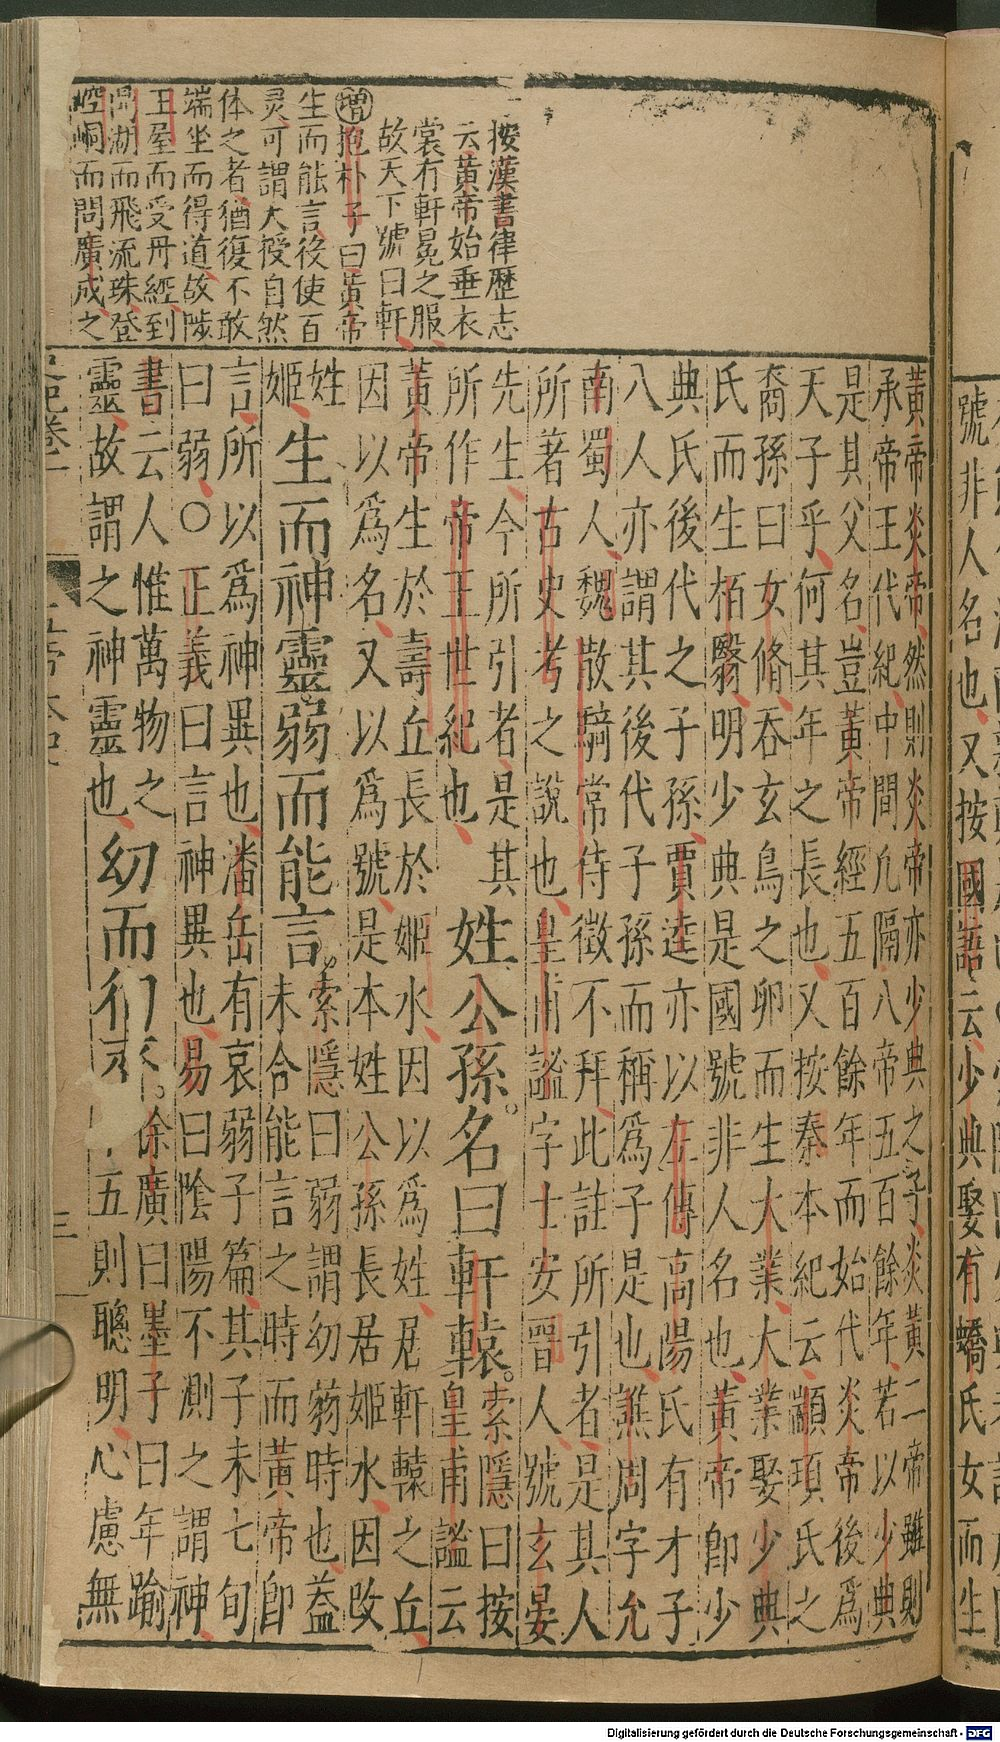 按漢書律歷志
云黃帝始垂衣
裳有軒冕之服
故天下號曰軒
增抱朴子曰黃帝
生而能言後使百
灵可謂大授自然
体之者猶復不敢
端坐而得道故陟
王屋而受丹經到
湖而飛流珠登
崆峒而問廣成之
黃帝炎帝然則炎帝亦少典之子炎黃二帝雖則
承帝王代紀中間凢隔八帝五百餘年若以少典
是其父名豈黃帝經五百餘年而始代炎帝後爲
天子乎何其年之長也又按秦本紀云顓頊氏之
裔孫曰女脩吞玄鳥之卵而生大業大業娶少典
氏而生栢翳明少典是國號非人名也黃帝卽少
典氏後代之子孫賈逵亦以左傳高陽氏有才子
八人亦謂其後代子孫而稱爲子是也譙周字允
南蜀人魏散騎常侍徵不拜此註所引者是其人
所著古史考之說也皇甫謐字士安晉人號玄晏
先生今所引者是其
所作帝王世紀也
姓公孫名曰軒轅
索隱曰按
皇甫謐云
黃帝生於壽丘長於姬水因以爲姓居軒轅之丘
因以爲名又以爲號是本姓公孫長居姬水因改
姓
姬
生而神靈弱而能言
索隱曰弱謂幼弱時也蓋
未合能言之時而黃帝卽
言所以爲神異也潘岳有哀弱子篇其子未七旬
曰弱〇正義曰言神異也易曰陰陽不測之謂神
書云人惟萬物之
靈故謂之神靈也
幼而
徐廣曰墨子曰年踰
五則聰明心慮無
三
號非人名也又按國語云少典娶有蟜氏女而生
Digitalisierung gefördert durch die Deutsche Forschungsgemeinschaft - DFG